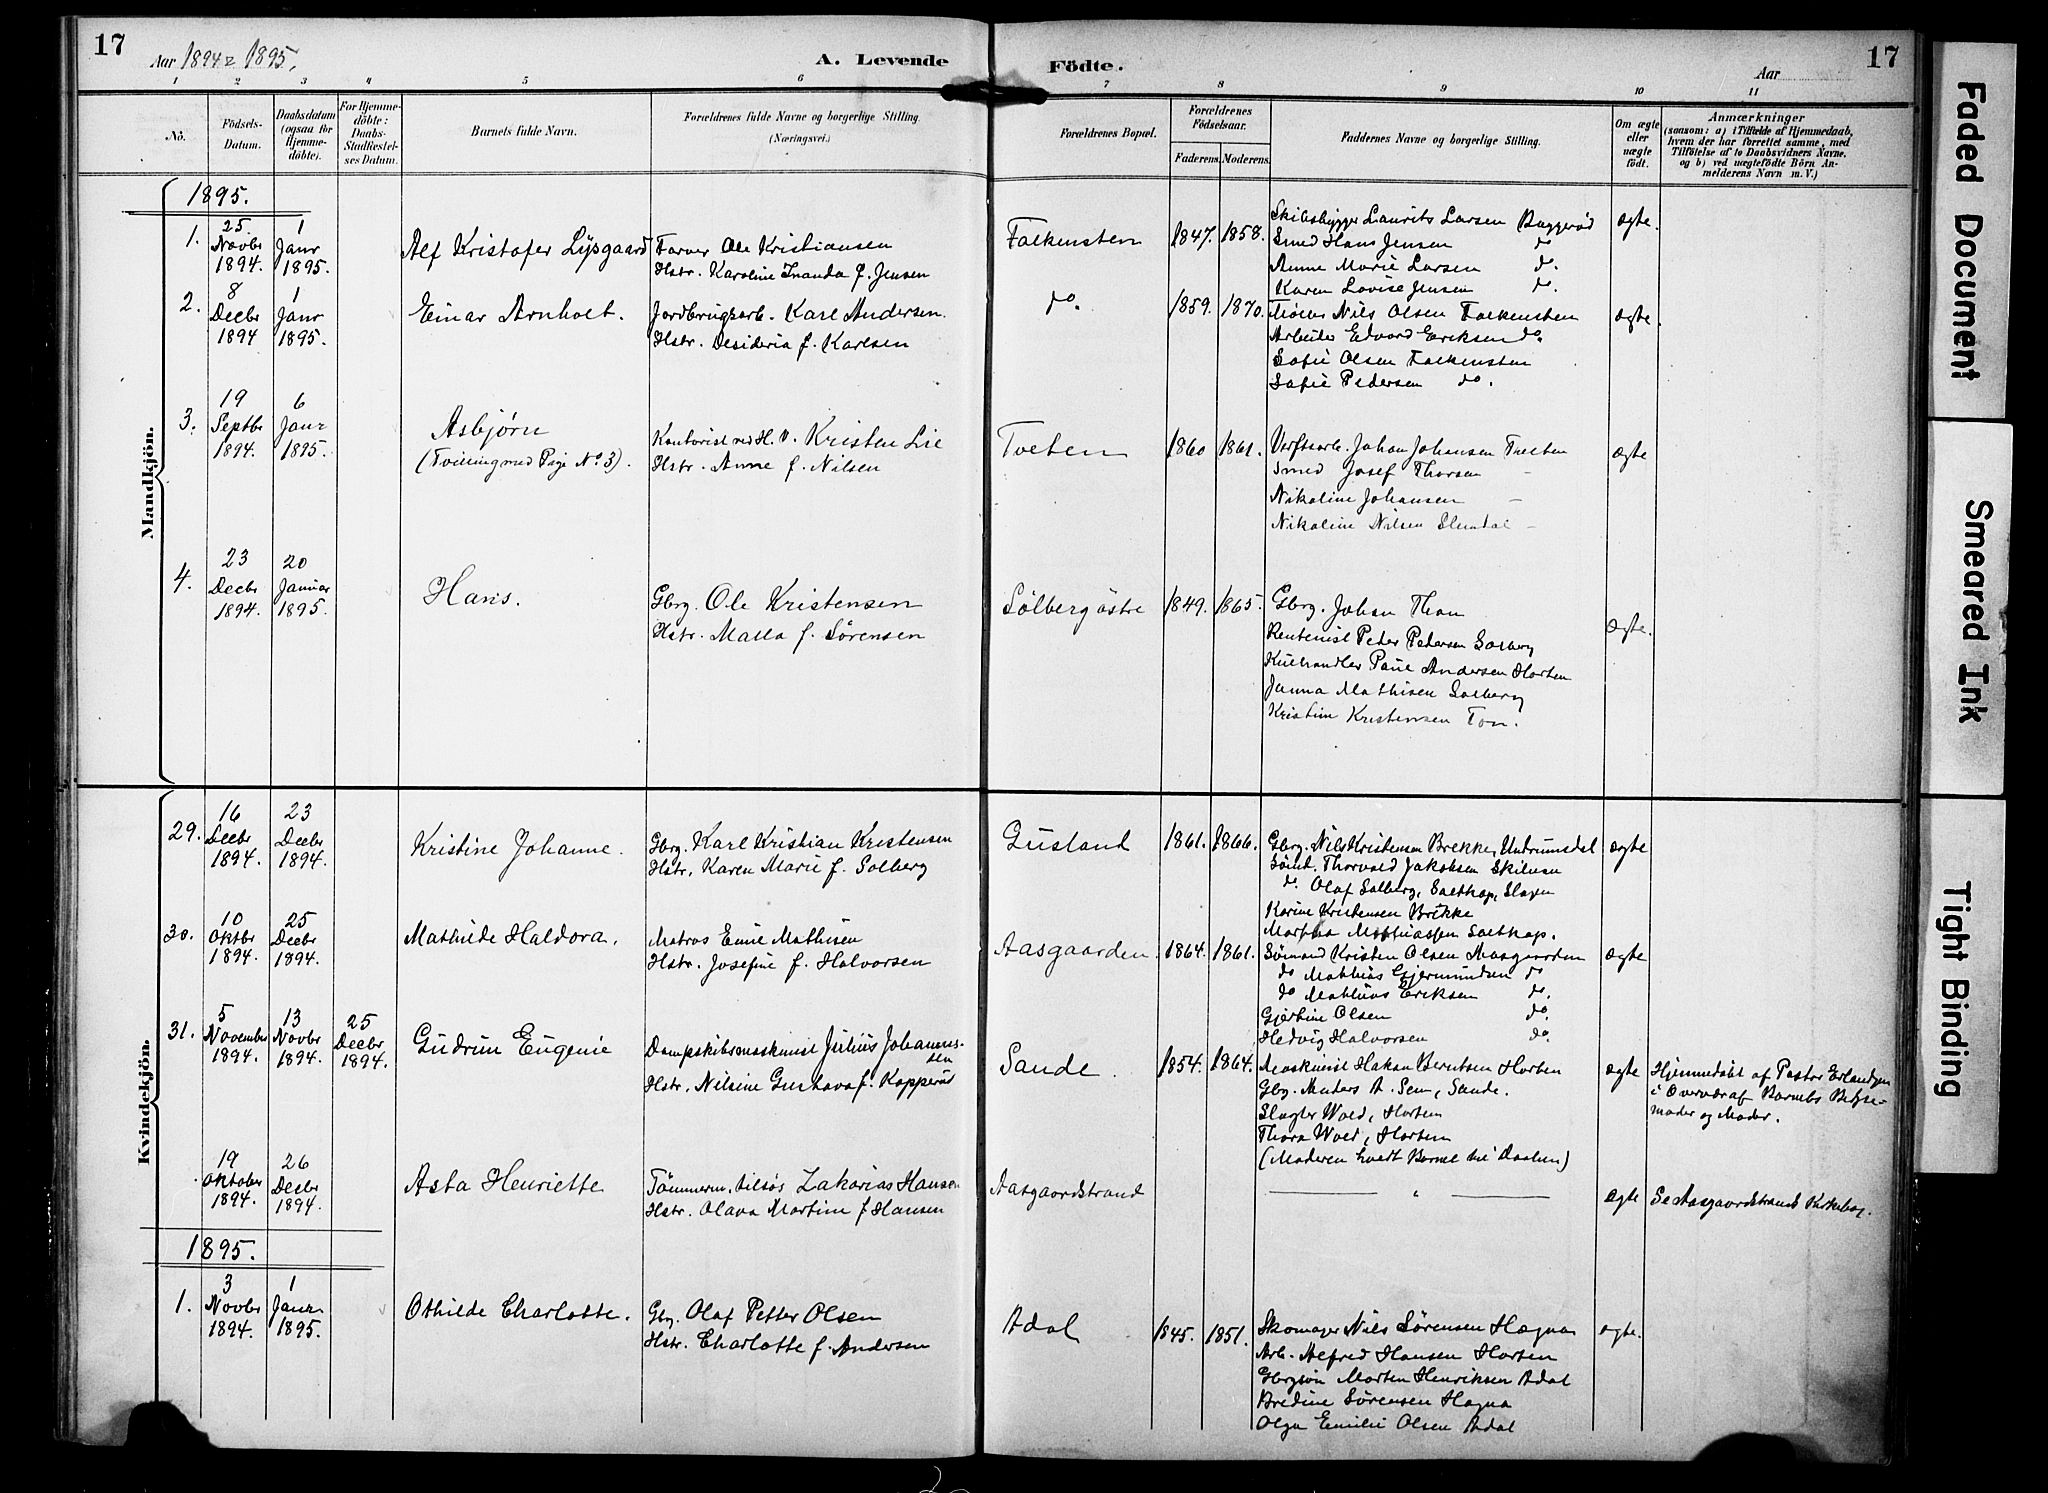 17
Aar 1894 & 1895.
A. Levende
Födte.
Aar
17
1 2 3 4 5 6 7 8 9 10 11
No.
Födsels-Datum.
Daabsdatum (ogsaa for Hjemme-döbte).
For Hjemme-döbte: Daabs-Stadfæstel-ses Datum.
Barnets fulde Navn.
Forældrenes fulde Navne og borgerlige Stilling.
(Næringsvei.)
Forældrenes Bopæl.
Forældrenes Födselsaar.
Faderens. Moderens.
Faddernes Navne og borgerlige Stilling.
Om ægte eller uægte födt.
Anmærkninger
(saasom: a) i Tilfælde af Hjemmedaab,
hvem der har forrettet samme, med
Tilföielse af to Daabsvidners Navne.
og b) ved uægtefödte Börn An-
melderens Navn m. V.)
Mandkjön.
1895.
1. 25. Novbr 1894. 1 Janr 1895. Alf Kristofer Lysgaard Farver Ole Kristiansen Falkensten 1847. 1858. Skibsbygger Laurits Larsen Baggerød ægte.
Hstr. Karoline Inanda f. Jensen Smed Hans Jensen do
Anne Marie Larsen do.
Karen Lovise Jensen do.
2. 8 Decbr 1894 1 Janr 1895. Einar Arnholt. Jordbrugsarb. Karl Andersen. do. 1859. 1870. Møller Nils Olsen Falkensten ægte.
Hstr. Desideria f. Karlsen Arbeider Edvard Eriksen do.
Sofie Olsen Falkensten
Sofie Pedersen do.
3. 19 Septbr 1894. 6 Janr 1895. Asbjørn Kontorist ved H. V. Kristen Lie Tveten 1860 1861. Verftsarb. Johan Johansen Tveten ægte
(Tvilling med Pige No 3). Hstr. Anne f. Nilsen Smed Josef Thorsen -
Nikoline Johansen -
Nikoline Nilsen -
4. 23 Decbr 1894. 20 Januar 1895. Hans. Gbrg. Ole Kristensen Sölberg östre 1849. 1865. Gbrg. Johan Thon ægte.
Hstr. Malla f. Sörensen Rentenist Peter Pedersen Solberg
Kulhandler Paul Andersen Horten
Janna Mathisen Solberg
Kristine Kristensen Ton.
Kvindekjön.
29. 16 Decbr 1894. 23 Decbr 1894. Kristine Johanne. Gbrg. Karl Kristian Kristensen Gusland 1861. 1866. Gbrg. Nils Kristensen Brekke, Undrumsdal ægte
Hstr. Karen Marie f. Solberg Sömd. Thorvald Jakobsen
do. Olaf Solberg, Saltkop, Slagen
Karine Kristensen Brekke
Martha Mathiassen Saltkop.
30. 10 Oktbr 1894. 25 Decbr 1894. Mathilde Haldora. Matros Emil Mathisen Aasgaarden. 1864. 1861. Sømand Kristen Olsen Aasgaarden ægte
Hstr. Josefine f. Halvorsen do Mathias Gjermundsen do
do Mathias Eriksen do.
Gjertine Olsen do.
Hedvig Halvorsen do.
31. 5 November 1894. 13 Novbr 1894. 25 Decbr 1894. Gudrun Eugenie Dampskibsmaskinist Julius Johannes-sen Sande. 1854. 1864. Maskinist Hakon Berntsen Horten ægte Hjemmedöbt af Pastor Erlandsen
Hstr. Nilsine Gustava f. Kopperud Gbg. Anders A. Sem, Sande. i Overvær af Barnets Bedste-
Slagter Wold, Horten moder og Moder.
Thora Wold, Horten
(Moderen holdt Barnet til Daaben)
19 Oktober 1894. 26 Decbr 1894. Asta Henriette Tömmerm. tilsös Zakarias Hansen Aasgaardstrand " ægte Se Aasgaardstrands Kirkebog.
Hstr. Olava Martine f Hansen
1895.
1. 3 Novbr 1894. 1 Janr 1895. Othilde Charlotte. Gbg. Olaf Petter Olsen Adal 1845. 1851. Skomager Nils Sørensen Hagna ægte.
Hstr. Charlotte f. Andersen Arb. Alfred Hansen Horten
Gbrgsön Morten Henriksen Adal
Bredine Sørensen Hagna
Olga Emilie Olsen Adal
Faded Document
Smeared Ink
Tight Binding